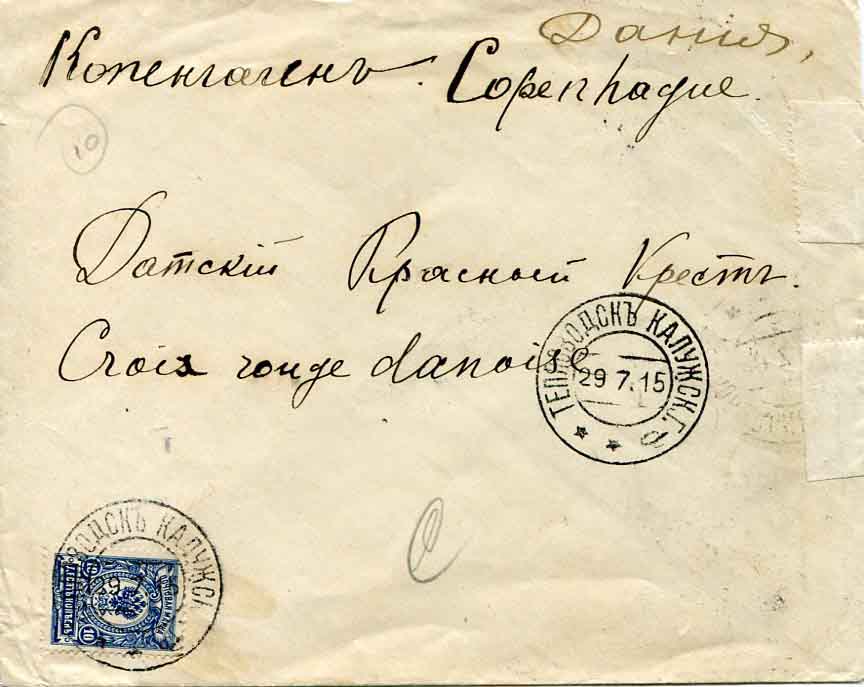 Дания,
Копенгагенъ. Copenhague.
10
Датскій Красный Крестъ.
Croix rouge danoise
ТЕПЛОВОДСКЪ КАЛУЖСК.Г.
29 7.15
ВОДСКЪ КАЛУЖСК
29 7
10 10
ПОЧТОВАЯ МАРКА
ДЕСЯТЬ КОПѢЕКЪ